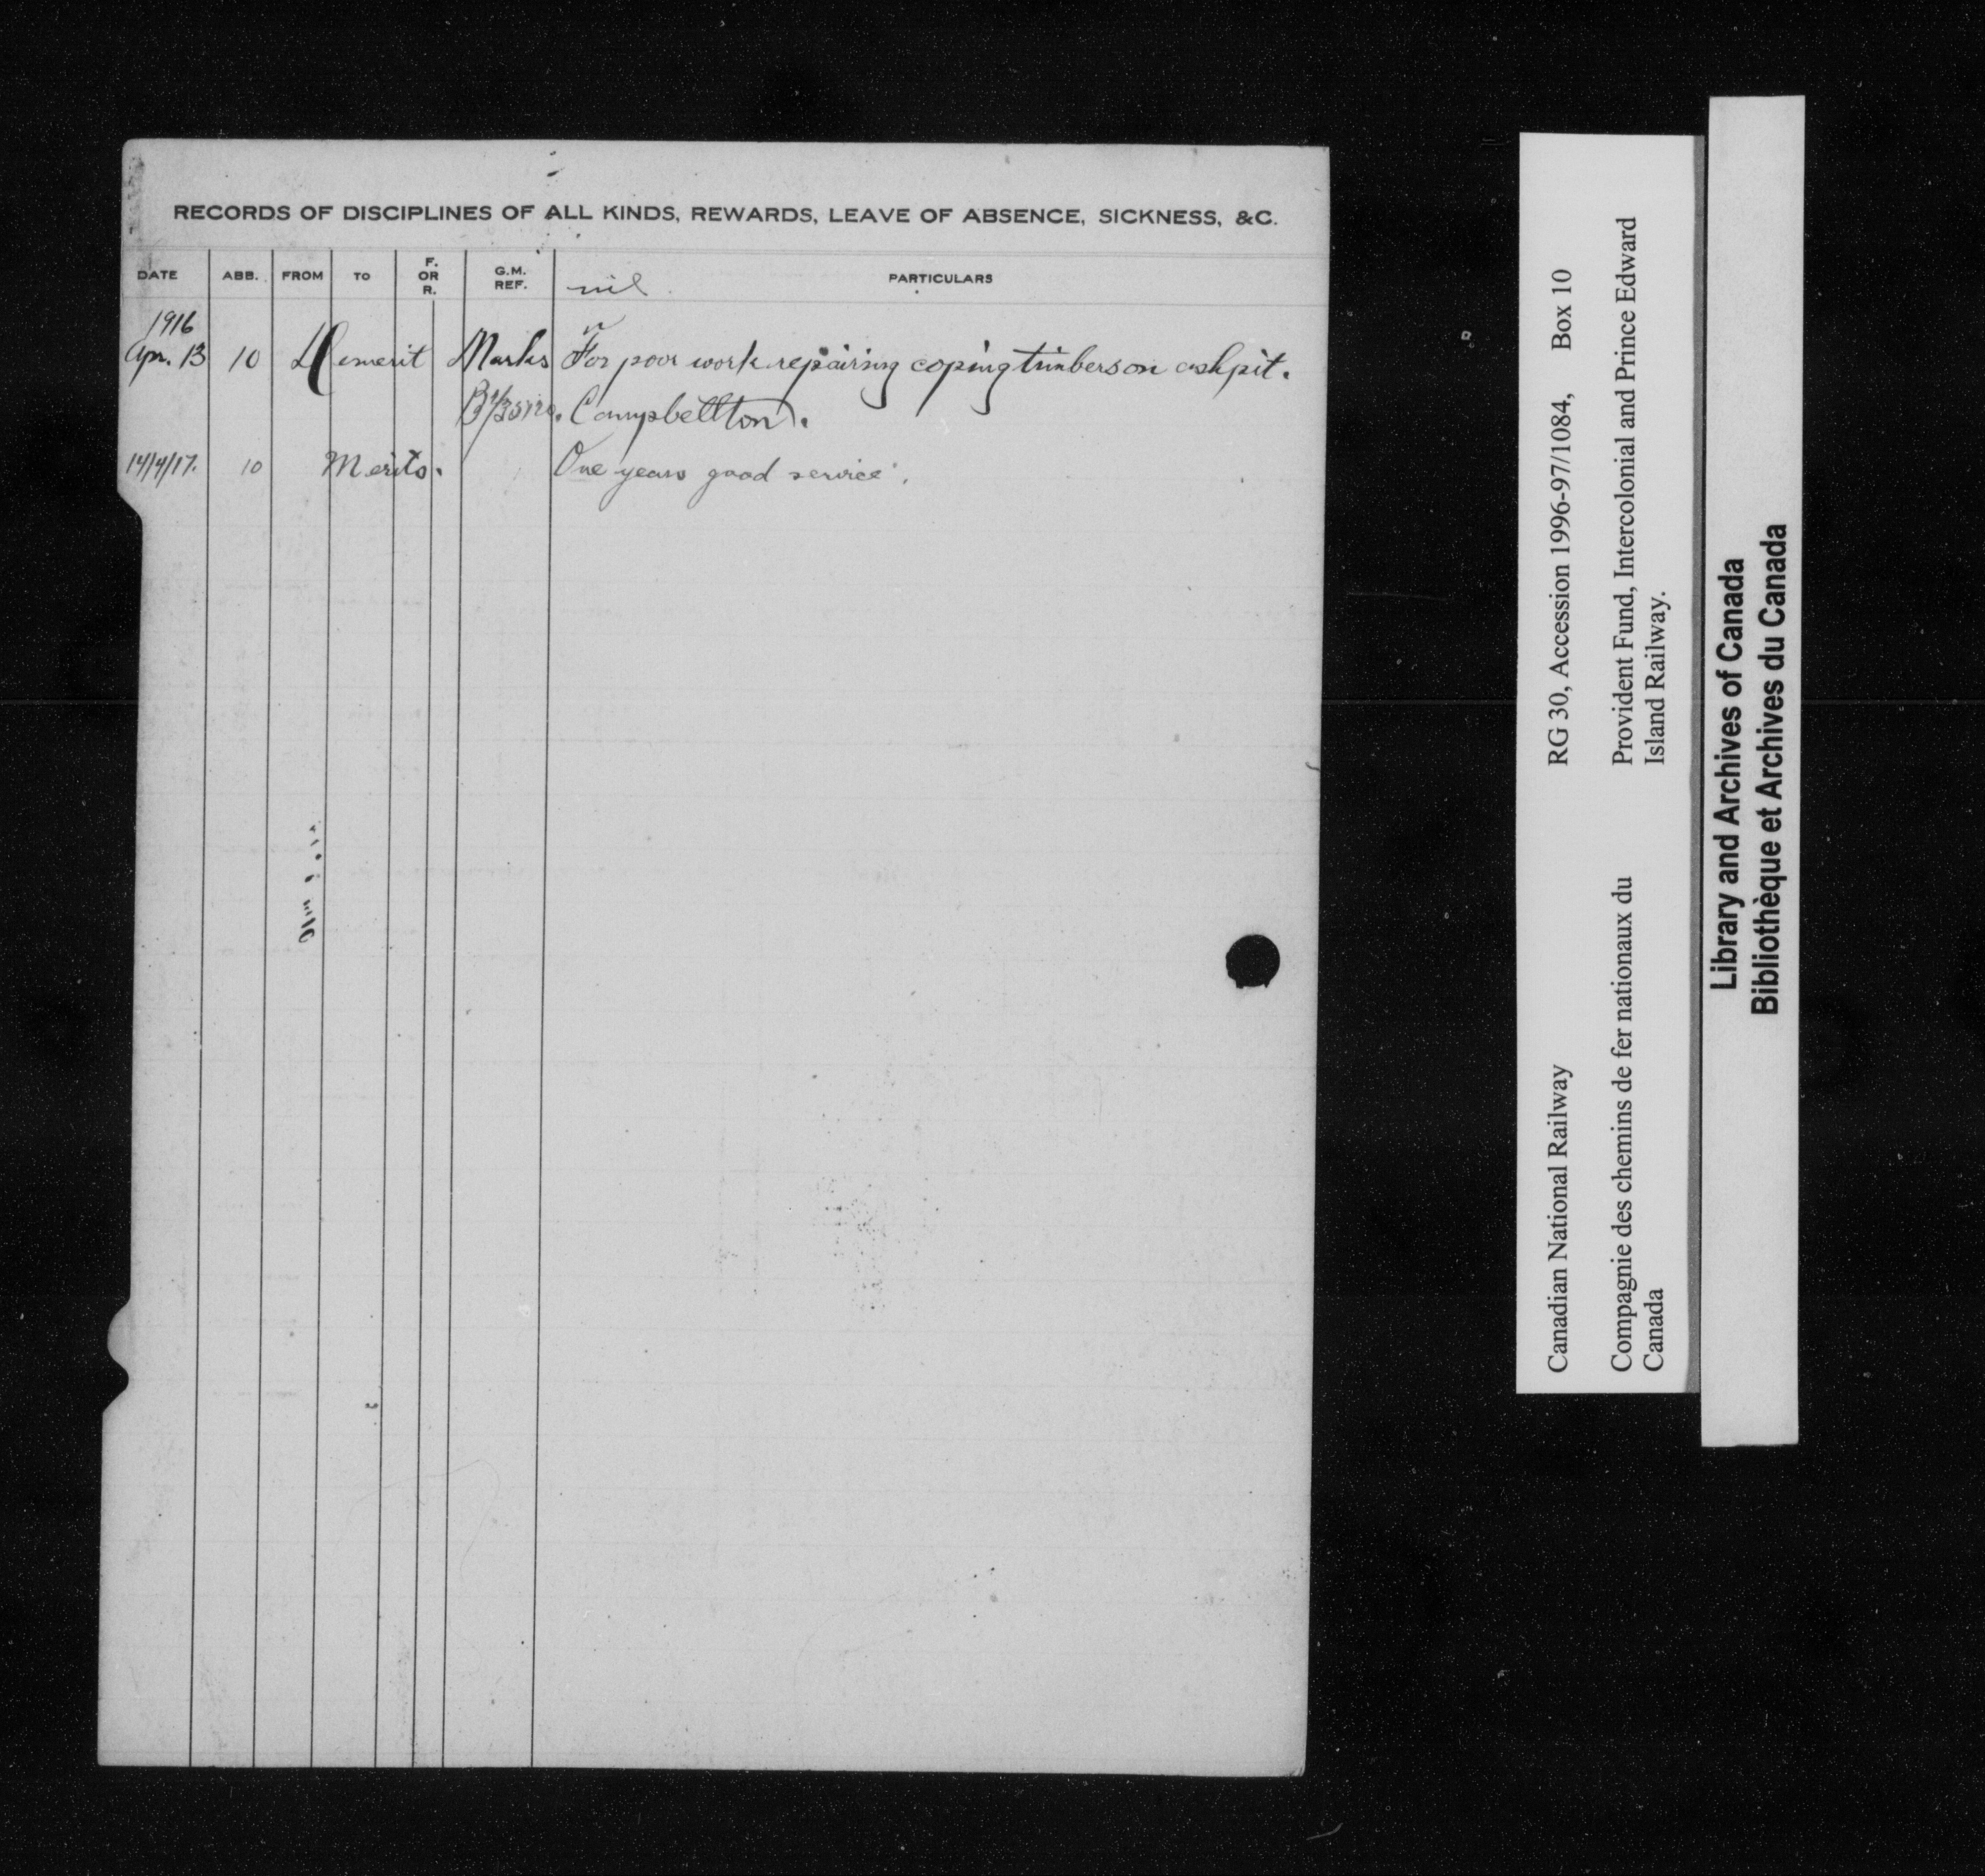 RECORDS OF DISCIPLINES OF ALL KINDS, REWARDS, LEAVE OF ABSENCE, SICKNESS, &C.
DATE ABB. FROM TO F. OR R. G.M. REF. nil PARTICULARS
1916
Apr. 13 10 Demerit Marks For poor work repairing coping timbers on ashpit.
Campbellton.
14/4/17. 10 Merits. One years good service.
Canadian National Railway RG 30, Accession 1996-97/1084, Box 10
Compagnie des chemins de fer nationaux du Provident Fund, Intercolonial and Prince Edward
Canada Island Railway.
Library and Archives of Canada
Bibliothèque et Archives du Canada